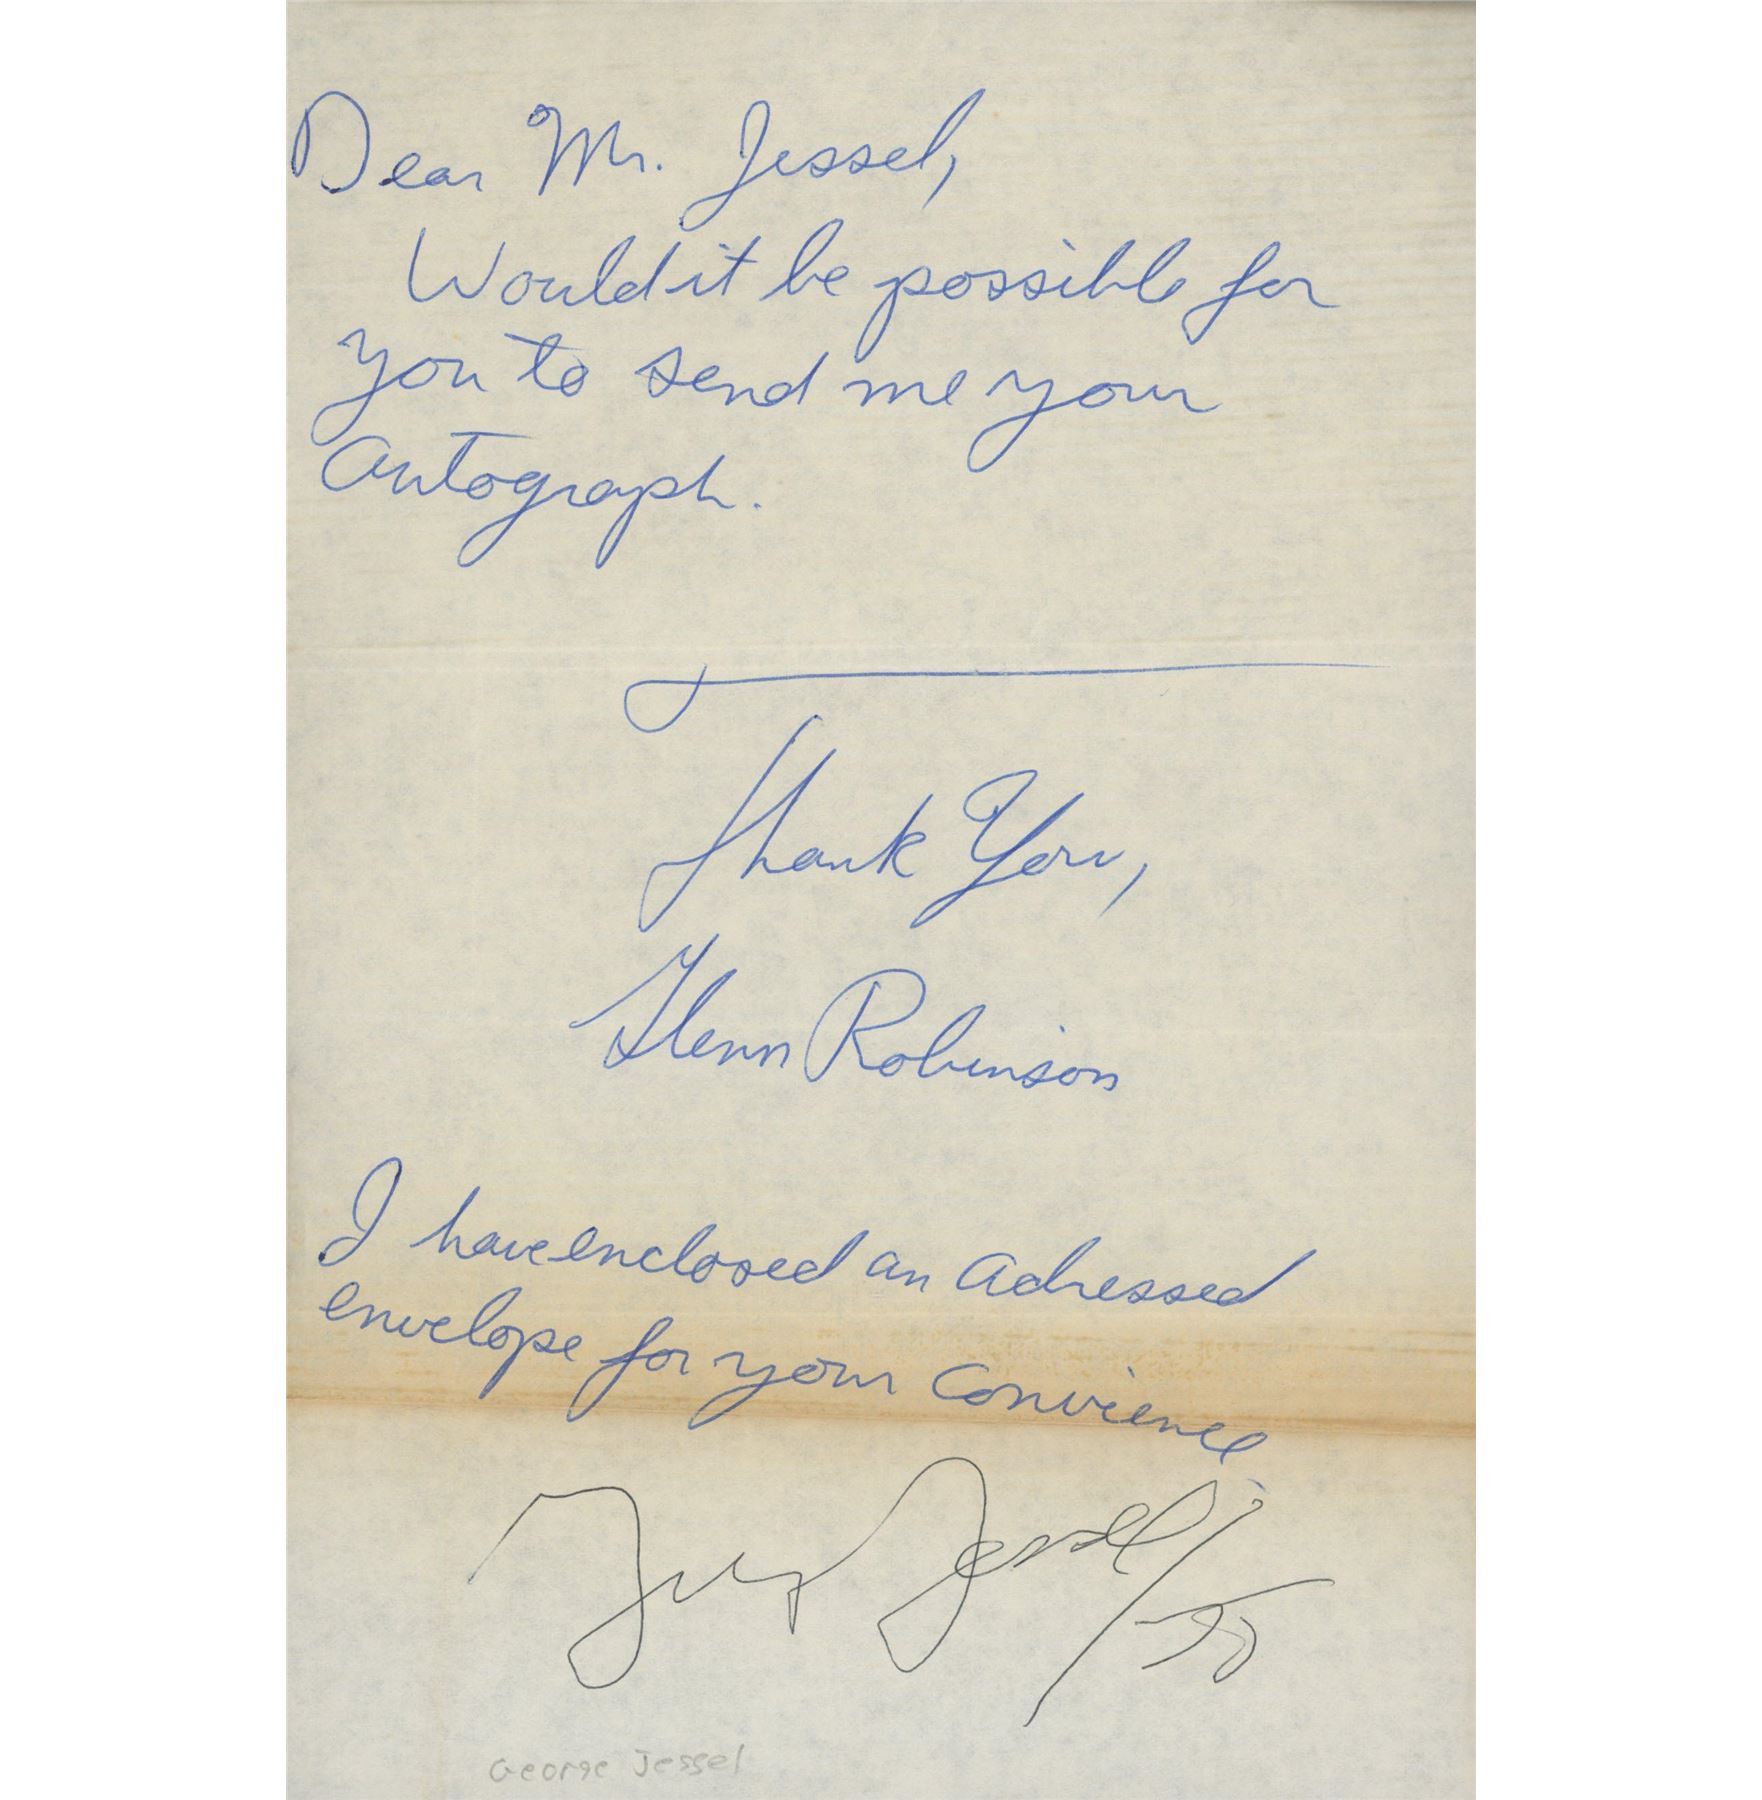 Dear Mr. Jessel,
Would it be possible for
you to send me your
autograph.
Thank You,
Glenn Robinson
I have enclosed an adressed
envelope for your convience.
George Jessel
George Jessel